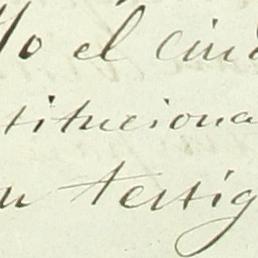 Yo el ciud
titucional
su testig